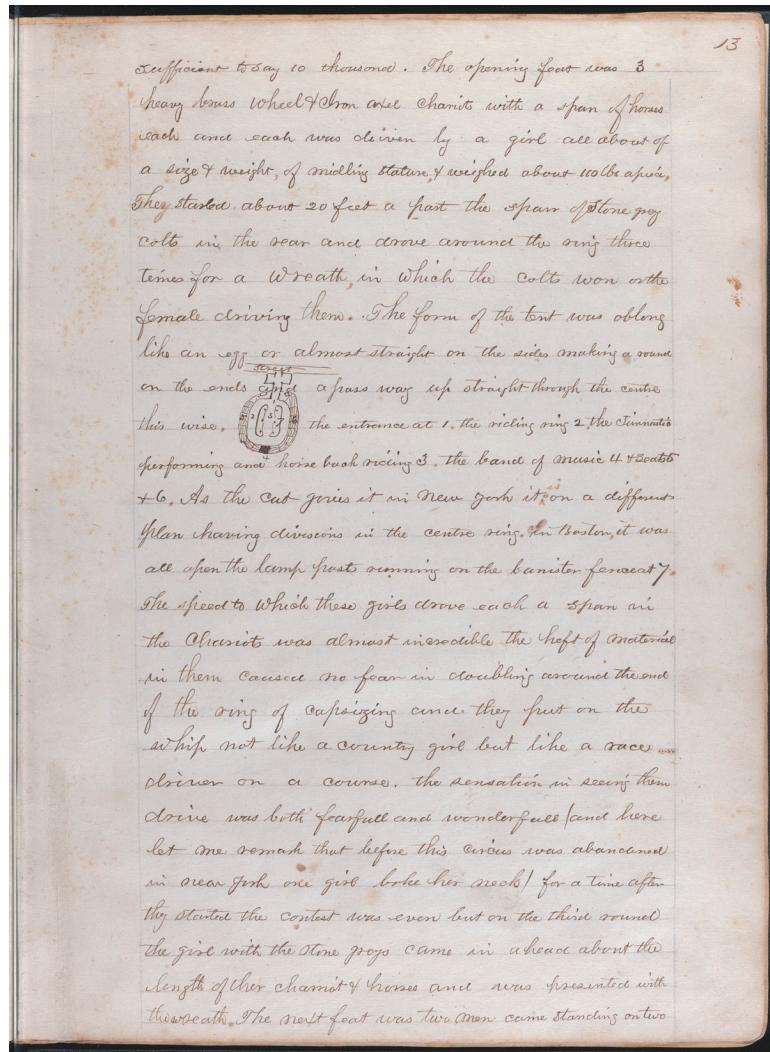 13
sufficient to say 10 thousand. The opening feat was 3
heavy brass wheel & Iron axel chariots with a span of horses
each and each was driven by a girl all about of
a size & weight, of midling stature, & weighed about 110 lbs apiece,
They started about 20 feet a part the span of Stone gray
colts in the rear and drove around the ring three
times for a wreath, in which the colts won or the
female driving them. The form of the tent was oblong
like an egg or almost straight on the sides making a round
on the ends and a pass way up straight through the centre
this wise. the entrance at 1, the riding ring 2, the Jimnastic
performing and horse back riding 3. the band of music 4 & Seats 5
& 6. As the cut gives it in New york it is on a different
plan having divisions in the centre ring. in Boston, it was
all open the lamp posts running on the banister fence at 7.
The speed to which these girls drove each a span in
the Chariots was almost incredible the heft of material
in them caused no fear in doubling around the end
of the ring of capsizing and they put on the
whip not like a country girl but like a race
driver on a course. the sensation in seeing them
drive was both fearfull and wonderfull (and here
let me remark that before this circus was abandaned
in new york one girl broke her neck) for a time after
they started the contest was even but on the third round
the girl with the stone grays came in ahead about the
length of her charriot & horses and was presented with
the wreath. The next feat was two men came standing on two